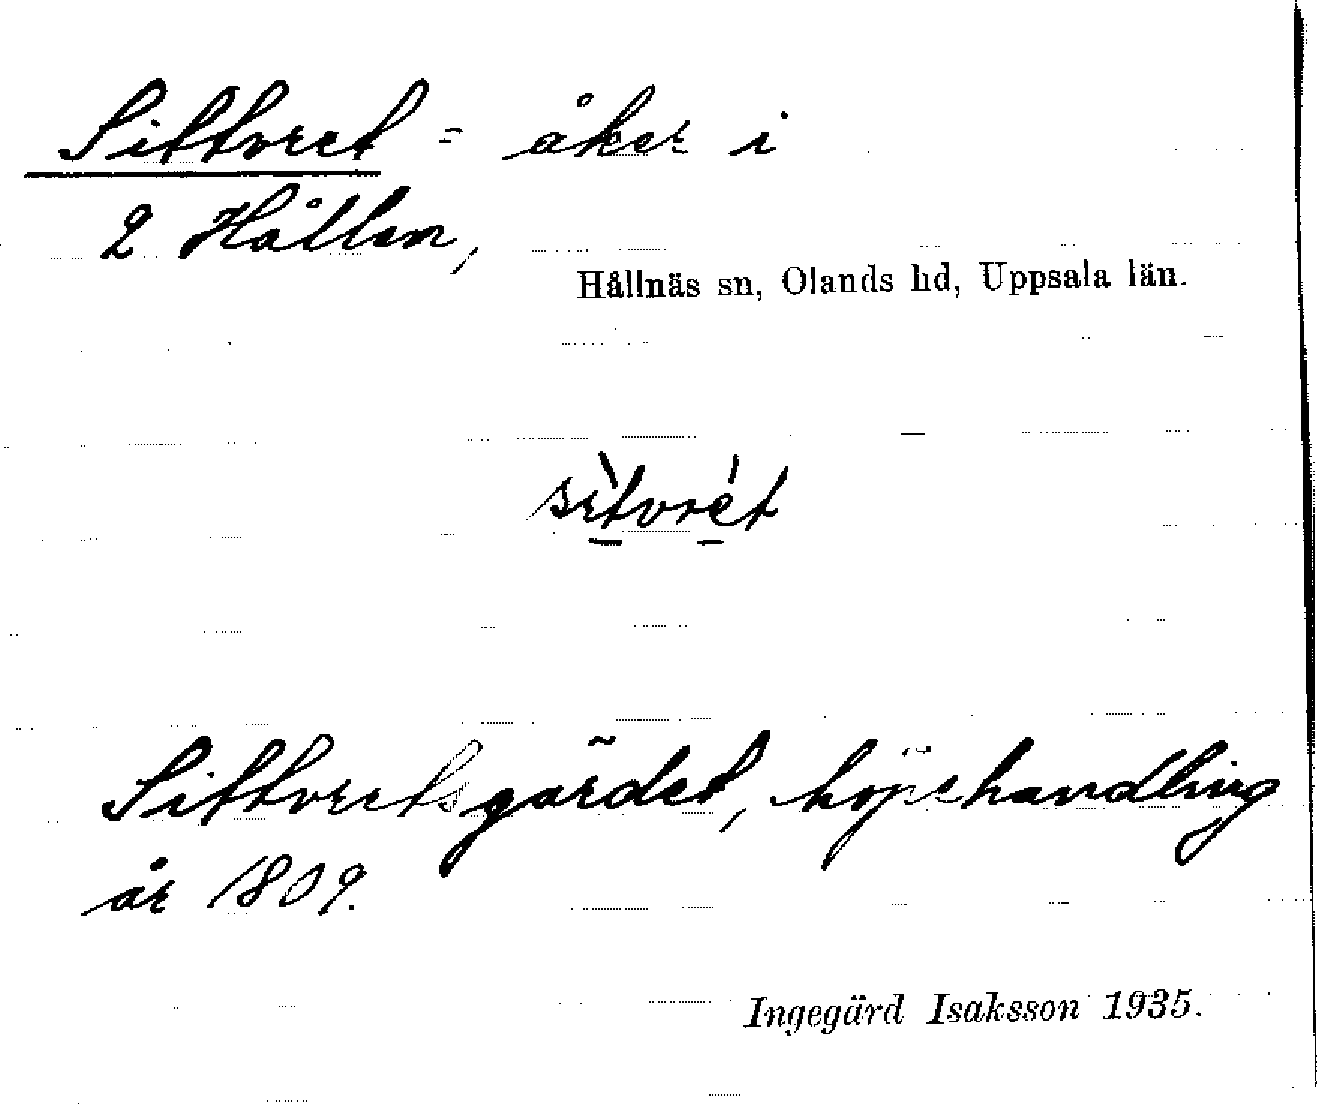 Sittvret = åker i
2 Hållen,
Hållnäs sn, Olands hd, Uppsala län.
sìtvrét
Sittvretsgärdet, köpehandling
år 1809.
Ingegärd Isaksson 1935.